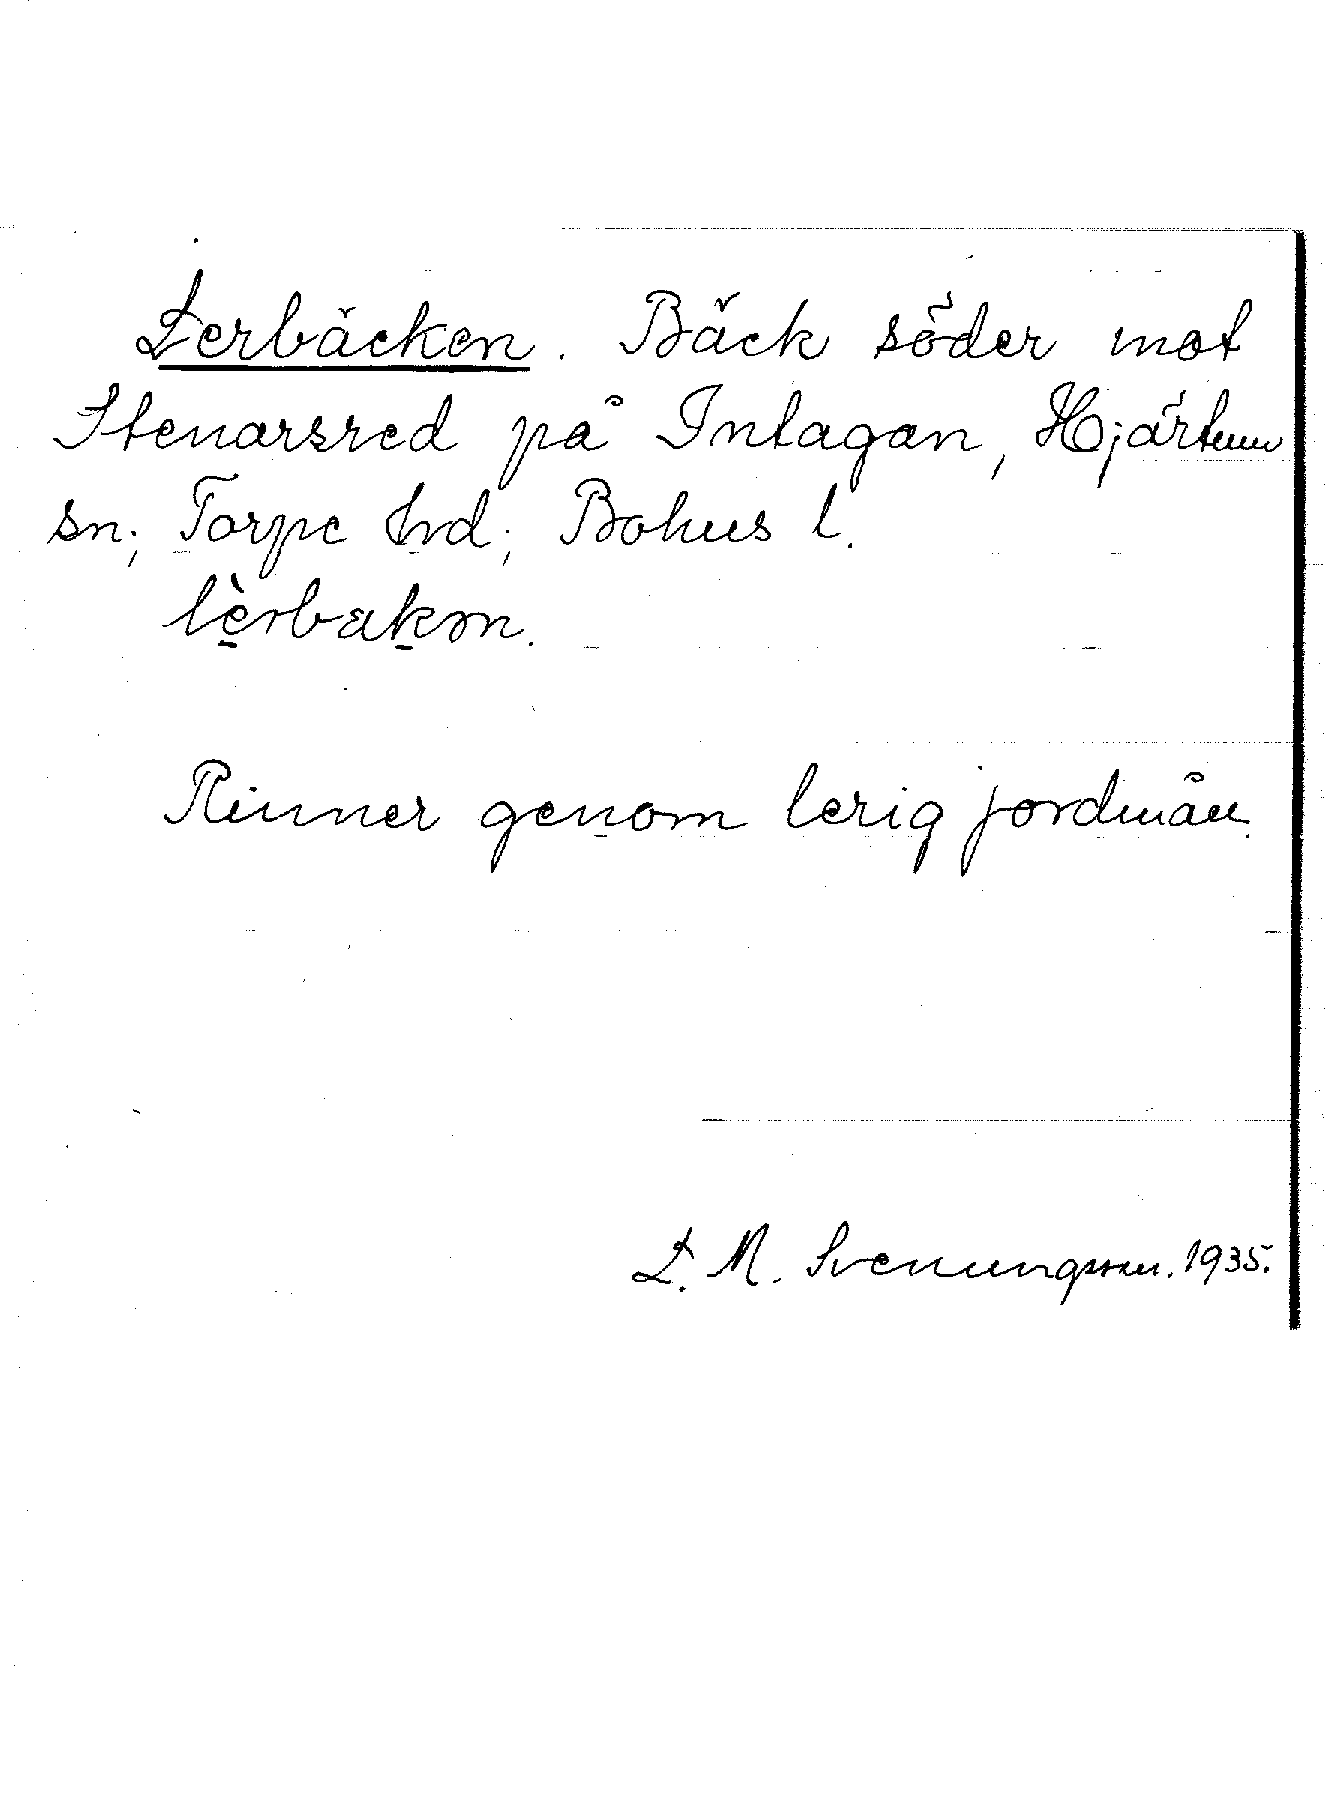 Lerbäcken. Bäck söder mot
Stenarsred på Intagan, Hjärtum
sn; Torpe hrd; Bohus l.
lèrbækən.
Rinner genom lerig jordmån.
L. M. Svenungsson. 1935.